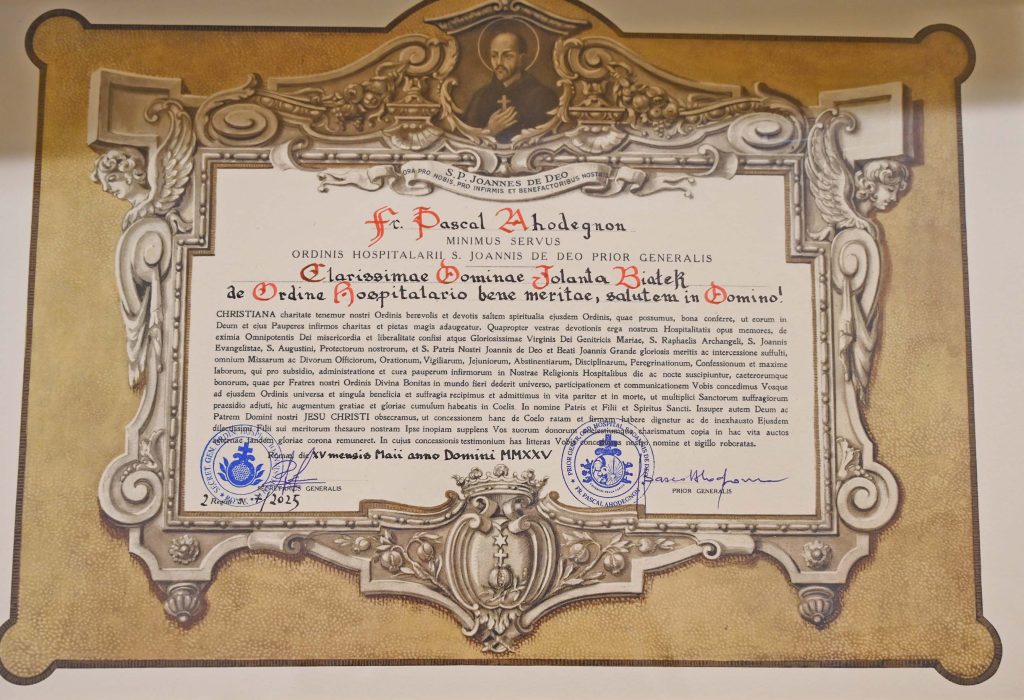 S. P. JOANNES DE DEO
ORA PRO NOBIS, PRO INFIRMIS ET BENEFACTORIBUS NOSTRIS
Fr. Pascal Ahodegnon
MINIMUS SERVUS
ORDINIS HOSPITALARII S. JOANNIS DE DEO PRIOR GENERALIS
Clarissimae Dominae Jolanta Białek
de Ordine Hospitalario bene meritae, salutem in Domino!
CHRISTIANA charitate tenemur nostri Ordinis berevolis et devotis saltem spiritualia ejusdem Ordinis, quae possumus, bona conferre, ut eorum in
Deum et ejus Pauperes infirmos charitas et pietas magis adaugeatur. Quapropter vestrae devotionis erga nostrum Hospitalitatis opus memores, de
eximia Omnipotentis Dei misericordia et liberalitate confisi atque Gloriosissimae Virginis Dei Genitricis Mariae, S. Raphaelis Archangeli, S. Joannis
Evangelistae, S. Augustini, Protectorum nostrorum, et S. Patris Nostri Joannis de Deo et Beati Joannis Grande gloriosis meritis ac intercessione suffulti,
omnium Missarum ac Divorum Officiorum, Orationum, Vigiliarum, Jejuniorum, Abstinentiarum, Disciplinarum, Peregrinationum, Confessionum et maxime
laborum, qui pro subsidio, administratione et cura pauperum infirmorum in Nostrae Religionis Hospitalibus die ac nocte suscipiuntur, caeterorumque
bonorum, quae per Fratres nostri Ordinis Divina Bonitas in mundo fieri dederit universo, participationem et communicationem Vobis concedimus Vosque
ad ejusdem Ordinis universa et singula beneficia et suffragia recipimus et admittimus in vita pariter et in morte, ut multiplici Sanctorum suffragiorum
praesidio adjuti, hic augmentum gratiae et gloriae cumulum habeatis in Coelis. In nomine Patris et Filii et Spiritus Sancti. Insuper autem Deum ac
Patrem Domini nostri JESU CHRISTI obsecramus, ut concessionem hanc de Coelo ratam et firmam habere dignetur ac de inexhausto Ejusdem
dilectissimi Filii sui meritorum thesauro nostram Ipse inopiam supplens Vos suorum donorum coelestiumque charismatum copia in hac vita auctos
aeternae tandem gloriae corona remuneret. In cujus concessionis testimonium has litteras Vobis concedimus nostro nomine et sigillo roboratas.
Romae, die XV mensis Maii anno Domini MMXXV
SECRETARIUS GENERALIS
PRIOR GENERALIS
PRIOR GEN. ORD. HOSPITAL. S. JOANNIS DE DEO
FR. PASCAL AHODEGNON